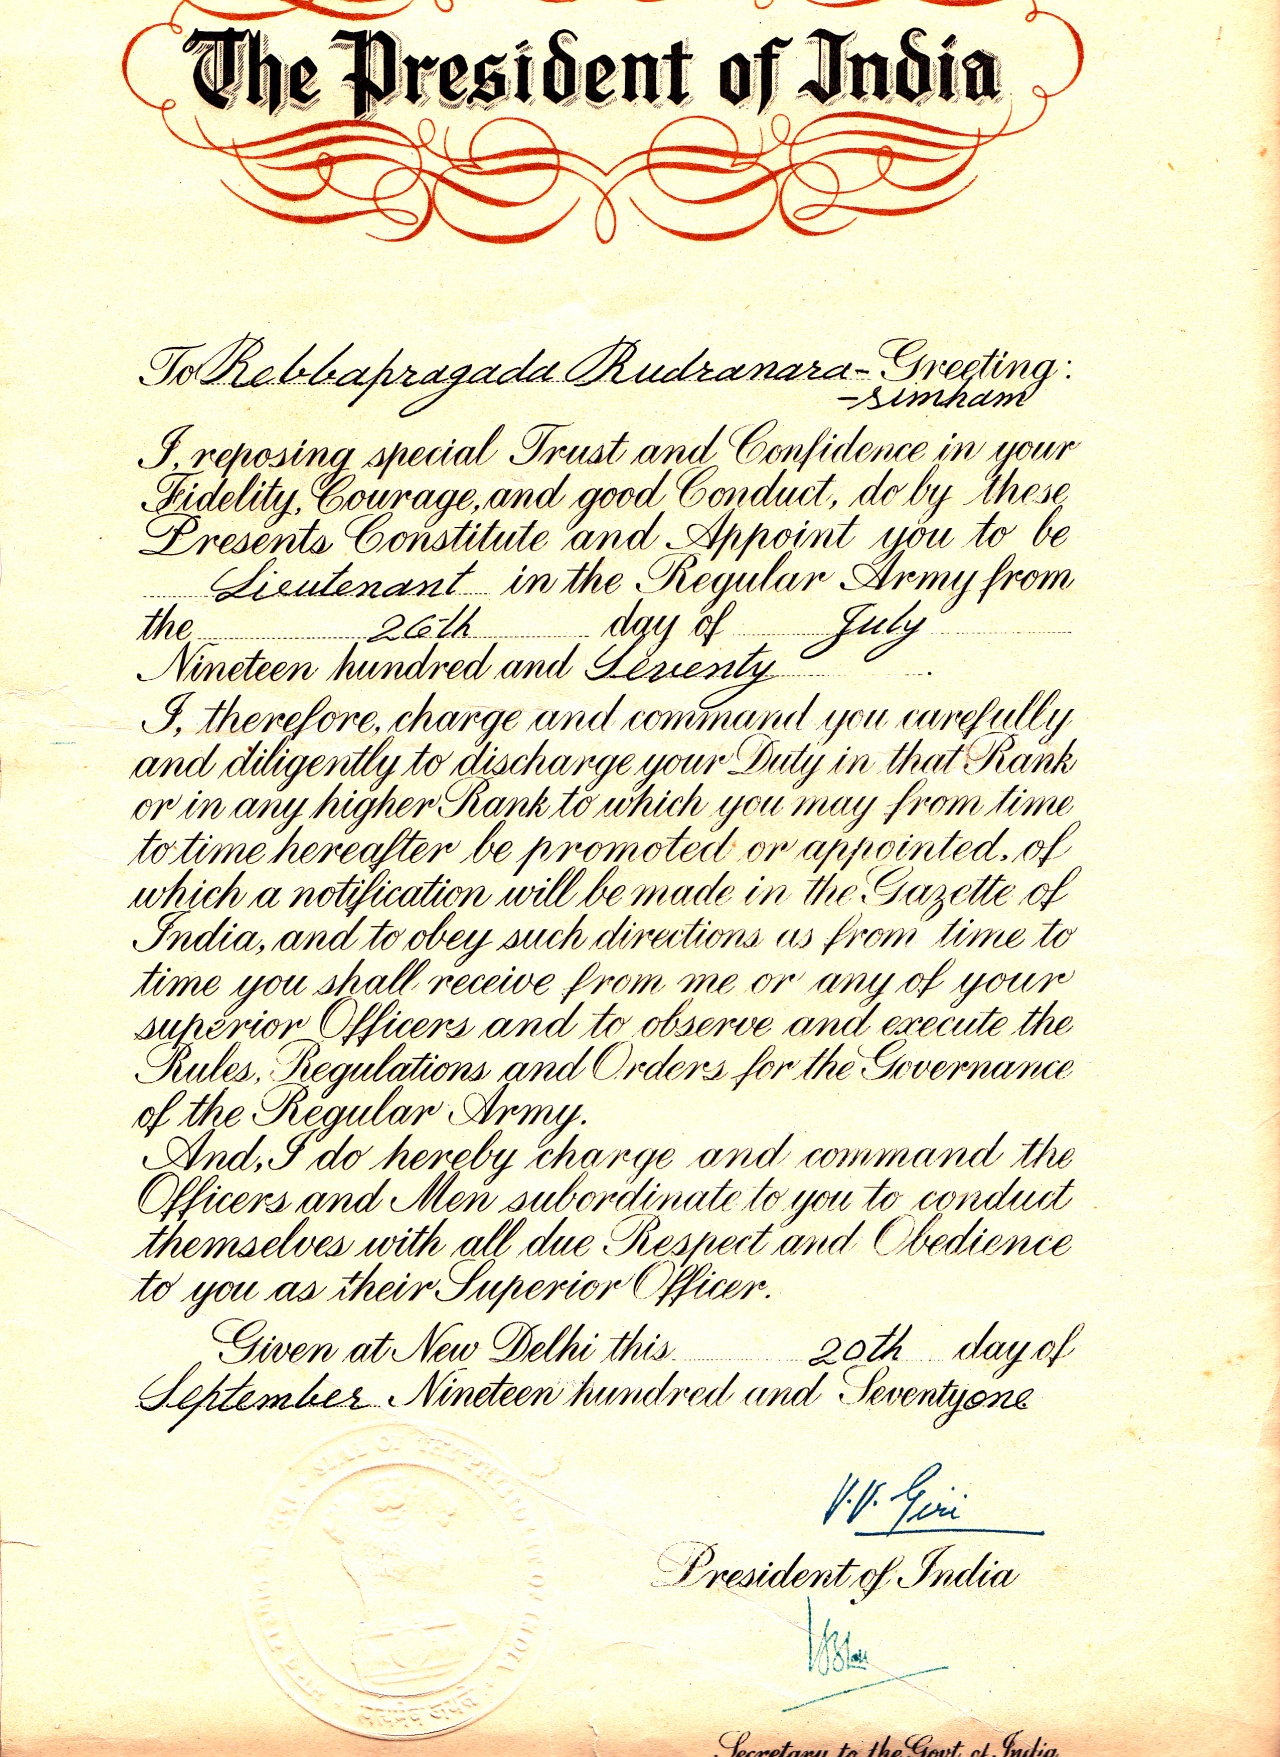 The President of India
To Rebbapragada Rudranara- Greeting:
-simham
I, reposing special Trust and Confidence in your
Fidelity, Courage, and good Conduct, do by these
Presents Constitute and Appoint you to be
Lieutenant in the Regular Army from
the 26th day of July
Nineteen hundred and Seventy
I, therefore, charge and command you carefully
and diligently to discharge your Duty in that Rank
or in any higher Rank to which you may from time
to time hereafter be promoted or appointed, of
which a notification will be made in the Gazette of
India, and to obey such directions as from time to
time you shall receive from me or any of your
superior Officers and to observe and execute the
Rules, Regulations and Orders for the Governance
of the Regular Army.
And, I do hereby charge and command the
Officers and Men subordinate to you to conduct
themselves with all due Respect and Obedience
to you as their Superior Officer.
Given at New Delhi this 20th day of
September Nineteen hundred and Seventyone
SEAL OF THE PRESIDENT OF INDIA
सत्यमेव जयते
V.V. Giri
President of India
Secretary to the Govt. of India